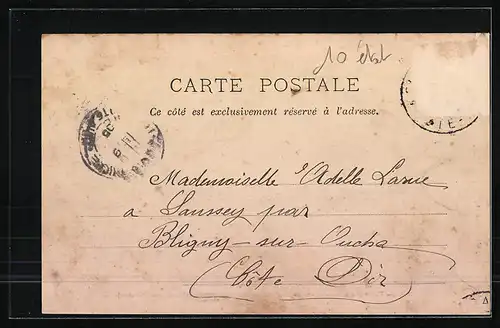 10 élst
CARTE POSTALE
Ce côté est exclusivement réservé à l'adresse.
Mademoiselle Adelle Larue
a Saussey par
Bligny-sur-Oucha
Côte Dir